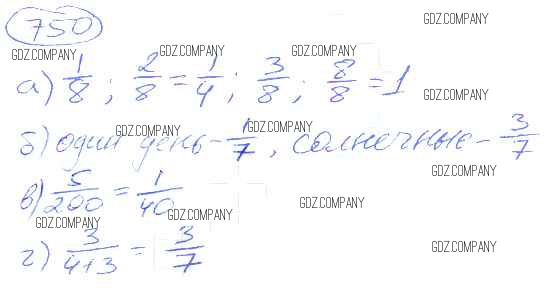 750
GDZ.COMPANY
GDZ.COMPANY GDZ.COMPANY GDZ.COMPANY
а) 1/8 ; 2/8 = 1/4 ; 3/8 ; 8/8 = 1
GDZ.COMPANY
GDZ.COMPANY GDZ.COMPANY
б) один день - 1/7 , солнечные - 3/7
GDZ.COMPANY
в) 5/200 = 1/40
GDZ.COMPANY
GDZ.COMPANY GDZ.COMPANY
г) 3/4+3 = 3/7
GDZ.COMPANY